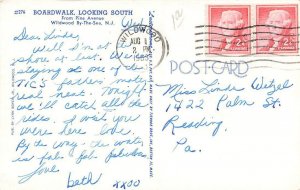 22776 BOARDWALK, LOOKING SOUTH
From Pine Avenue
Wildwood By-The-Sea, N.J.
Wed.
Dear Linda,
Well I'm at the
shore at last. We are
staying at one of the
TIC's
real neat. Tonight
we'll catch all the
rides. I wish you
were here love
By the way - the water
is fab - fab - fabulous
Love
beth
XXOO
WILDWOOD
AUG
PM
2¢
2¢
POST-CARD
Miss Linda Wetzel
1422 Palm St.
Reading,
Pa.